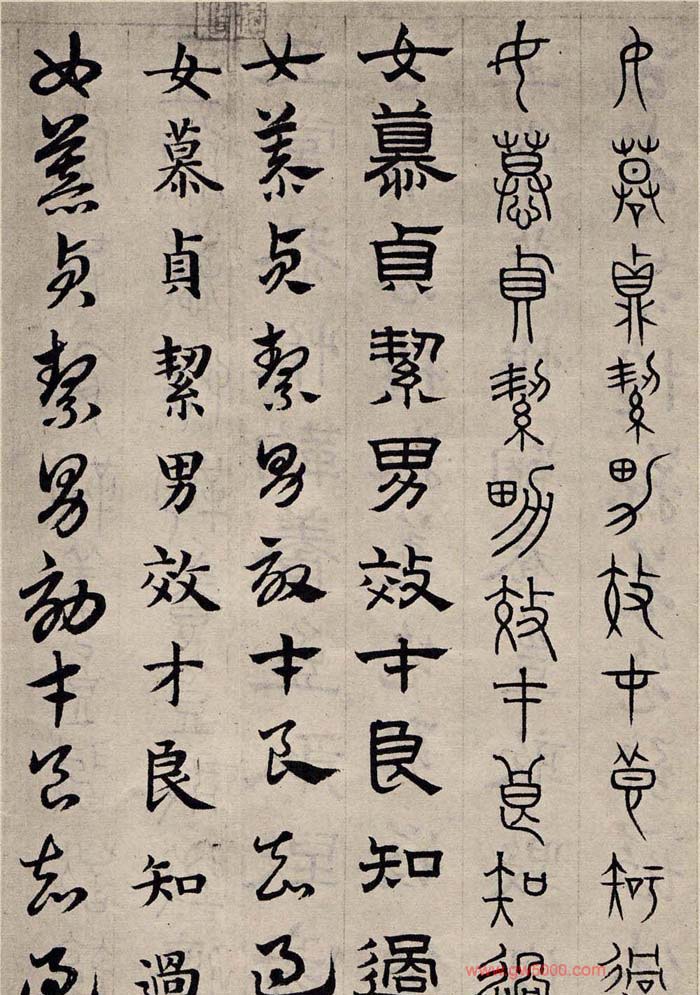 女慕貞絜男效才良知過
女慕貞絜男效才良知過
女慕貞絜男效才良知過
女慕貞絜男效才良知過
女慕貞絜男效才良知過
女慕貞絜男効才良知過
www.gw5000.com